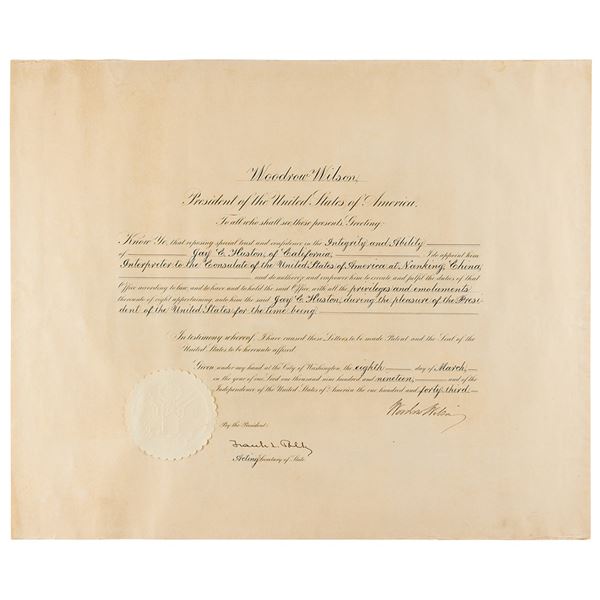 Woodrow Wilson,
President of the United States of America.
To all who shall see these presents, Greeting:
Know Ye, that reposing special trust and confidence in the Integrity and Ability
of Jay C. Huston, of California, I do appoint him
Interpreter to the Consulate of the United States of America at Nanking, China,
and do authorize and empower him to execute and fulfil the duties of that
Office according to law, and to have and to hold the said Office, with all the privileges and emoluments
thereunto of right appertaining, unto him the said Jay C. Huston, during the pleasure of the Presi-
dent of the United States for the time being.
In testimony whereof, I have caused these Letters to be made Patent and the Seal of the
United States to be hereunto affixed.
Given under my hand at the City of Washington the eighth day of March,
in the year of our Lord one thousand nine hundred and nineteen, and of the
Independence of the United States of America the one hundred and forty-third.
Woodrow Wilson
By the President:
Frank L. Polk
Acting Secretary of State.